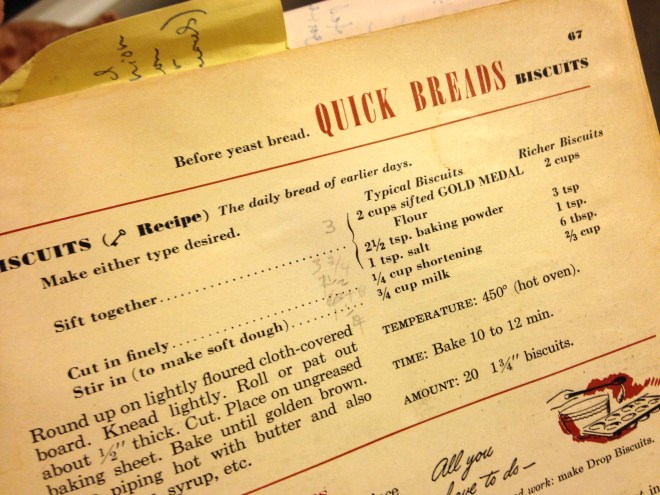 67
Before yeast bread. QUICK BREADS BISCUITS
ISCUITS ( Recipe) The daily bread of earlier days.
Make either type desired.
Typical Biscuits Richer Biscuits
Sift together
3
2 cups sifted GOLD MEDAL 2 cups
Flour
2½ tsp. baking powder 3 tsp
1 tsp. salt 1 tsp.
Cut in finely
¼ cup shortening 6 tbsp.
Stir in (to make soft dough)
¾ cup milk ⅔ cup
Round up on lightly floured cloth-covered
board. Knead lightly. Roll or pat out
about ½" thick. Cut. Place on ungreased
baking sheet. Bake until golden brown.
piping hot with butter and also
syrup, etc.
TEMPERATURE: 450° (hot oven).
TIME: Bake 10 to 12 min.
AMOUNT: 20 1¾" biscuits.
All you
to do—
work: make Drop Biscuits.